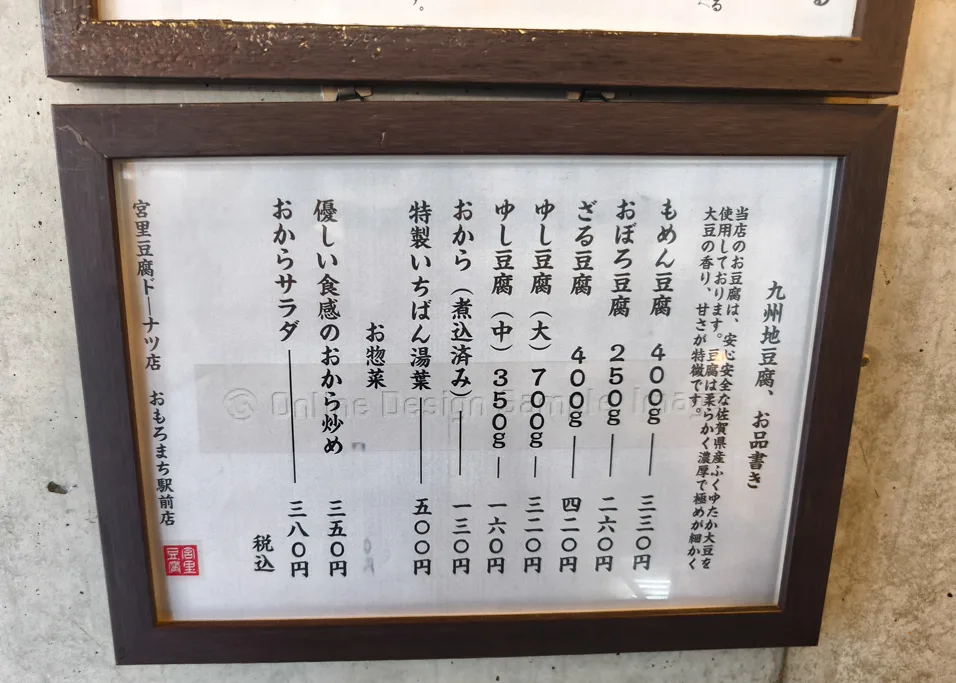 九州地豆腐、お品書き
当店のお豆腐は、安心安全な佐賀県産ふくゆたか大豆を
使用しております。豆腐は柔らかく濃厚で極めが細かく
大豆の香り、甘さが特徴です。
もめん豆腐 400g ― 三三〇円
おぼろ豆腐 250g ― 二六〇円
ざる豆腐 400g ― 四二〇円
ゆし豆腐(大)700g ― 三二〇円
ゆし豆腐(中)350g ― 一六〇円
おから(煮込済み) ― 一三〇円
特製いちばん湯葉 ― 五〇〇円
お惣菜
優しい食感のおから炒め 三五〇円
おからサラダ ― 三八〇円
税込
宮里豆腐ドーナツ店 おもろまち駅前店
宮里豆腐
© Online Design Sample Ima